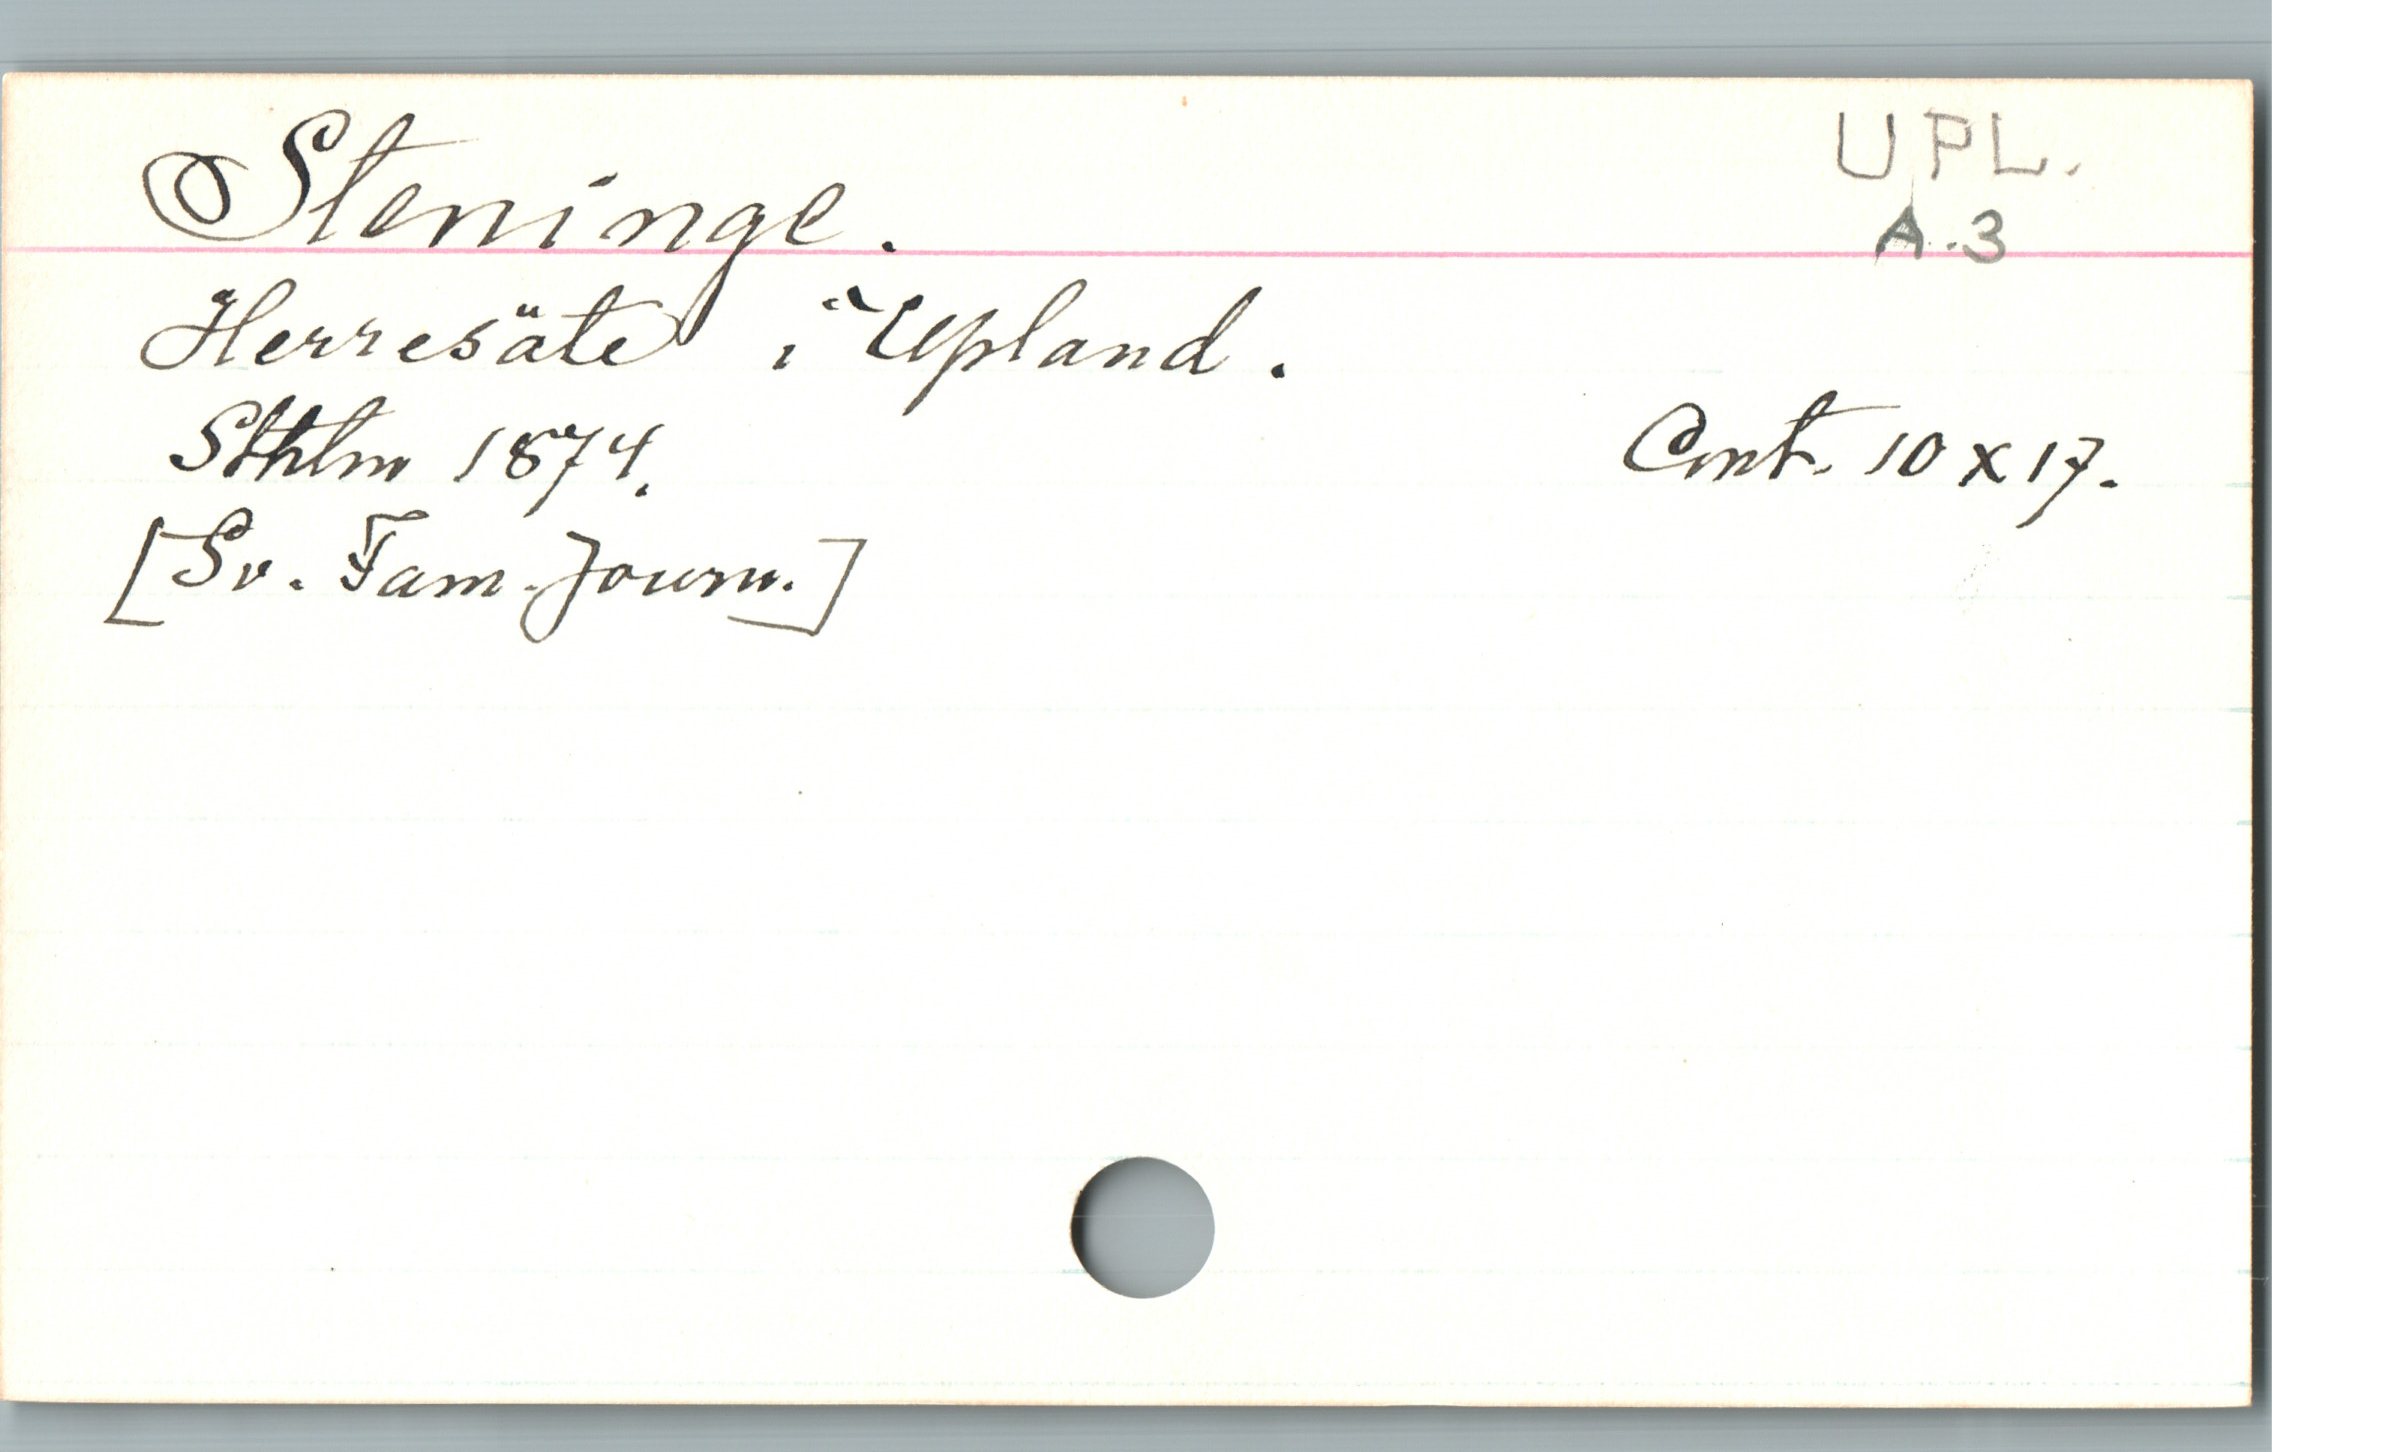 Steninge.
UPL.
A.3
Herresäte i Upland.
Sthlm 1874.
Cont. 10 x 17.
[Sv. Fam. Journ.]